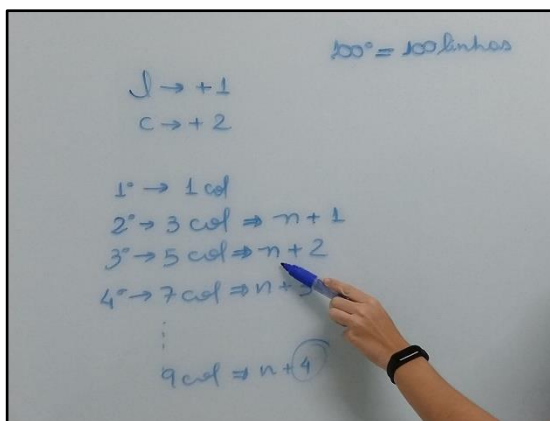 100° = 100 linhas
l → + 1
c → + 2
1° → 1 col
2° → 3 col ⇒ n + 1
3° → 5 col ⇒ n + 2
4° → 7 col ⇒ n + 3
9 col ⇒ n + 4